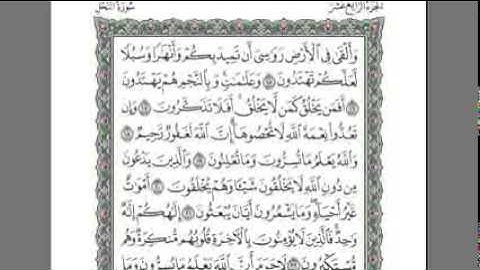 الجزء الرابع عشر
سورة النحل
وَأَلْقَىٰ فِي الْأَرْضِ رَوَاسِيَ أَن تَمِيدَ بِكُمْ وَأَنْهَارًا وَسُبُلًا
لَّعَلَّكُمْ تَهْتَدُونَ ١٥ وَعَلَامَاتٍ وَبِالنَّجْمِ هُمْ يَهْتَدُونَ
١٦ أَفَمَن يَخْلُقُ كَمَن لَّا يَخْلُقُ أَفَلَا تَذَكَّرُونَ ١٧ وَإِن
تَعُدُّوا نِعْمَةَ اللَّهِ لَا تُحْصُوهَا إِنَّ اللَّهَ لَغَفُورٌ رَّحِيمٌ ١٨
وَاللَّهُ يَعْلَمُ مَا تُسِرُّونَ وَمَا تُعْلِنُونَ ١٩ وَالَّذِينَ يَدْعُونَ
مِن دُونِ اللَّهِ لَا يَخْلُقُونَ شَيْئًا وَهُمْ يُخْلَقُونَ ٢٠ أَمْوَاتٌ
غَيْرُ أَحْيَاءٍ وَمَا يَشْعُرُونَ أَيَّانَ يُبْعَثُونَ ٢١ إِلَٰهُكُمْ إِلَٰهٌ
وَاحِدٌ فَالَّذِينَ لَا يُؤْمِنُونَ بِالْآخِرَةِ قُلُوبُهُم مُّنكِرَةٌ وَهُم
مُّسْتَكْبِرُونَ ٢٢ لَا جَرَمَ أَنَّ اللَّهَ يَعْلَمُ مَا يُسِرُّونَ وَمَا